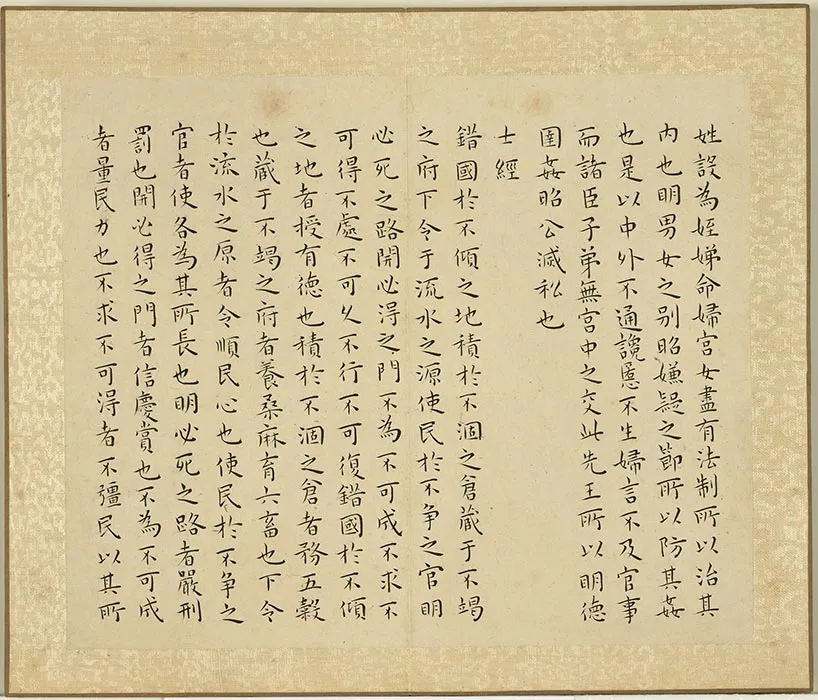 姓設為姪娣命婦宮女盡有法制所以治其
內也明男女之別昭嫌疑之節所以防其姦
也是以中外不通讒慝不生婦言不及官事
而諸臣子弟無宮中之交此先王所以明德
圉姦昭公滅私也
士經
錯國於不傾之地積於不涸之倉蔵于不竭
之府下令于流水之源使民於不争之官明
必死之路開必得之門不為不可成不求不
可得不處不可久不行不可復錯國於不傾
之地者授有德也積於不涸之倉者務五穀
也蔵于不竭之府者養桑麻育六畜也下令
於流水之原者令順民心也使民於不争之
官者使各為其所長也明必死之路者嚴刑
罰也開必得之門者信慶賞也不為不可成
者量民力也不求不可得者不彊民以其所